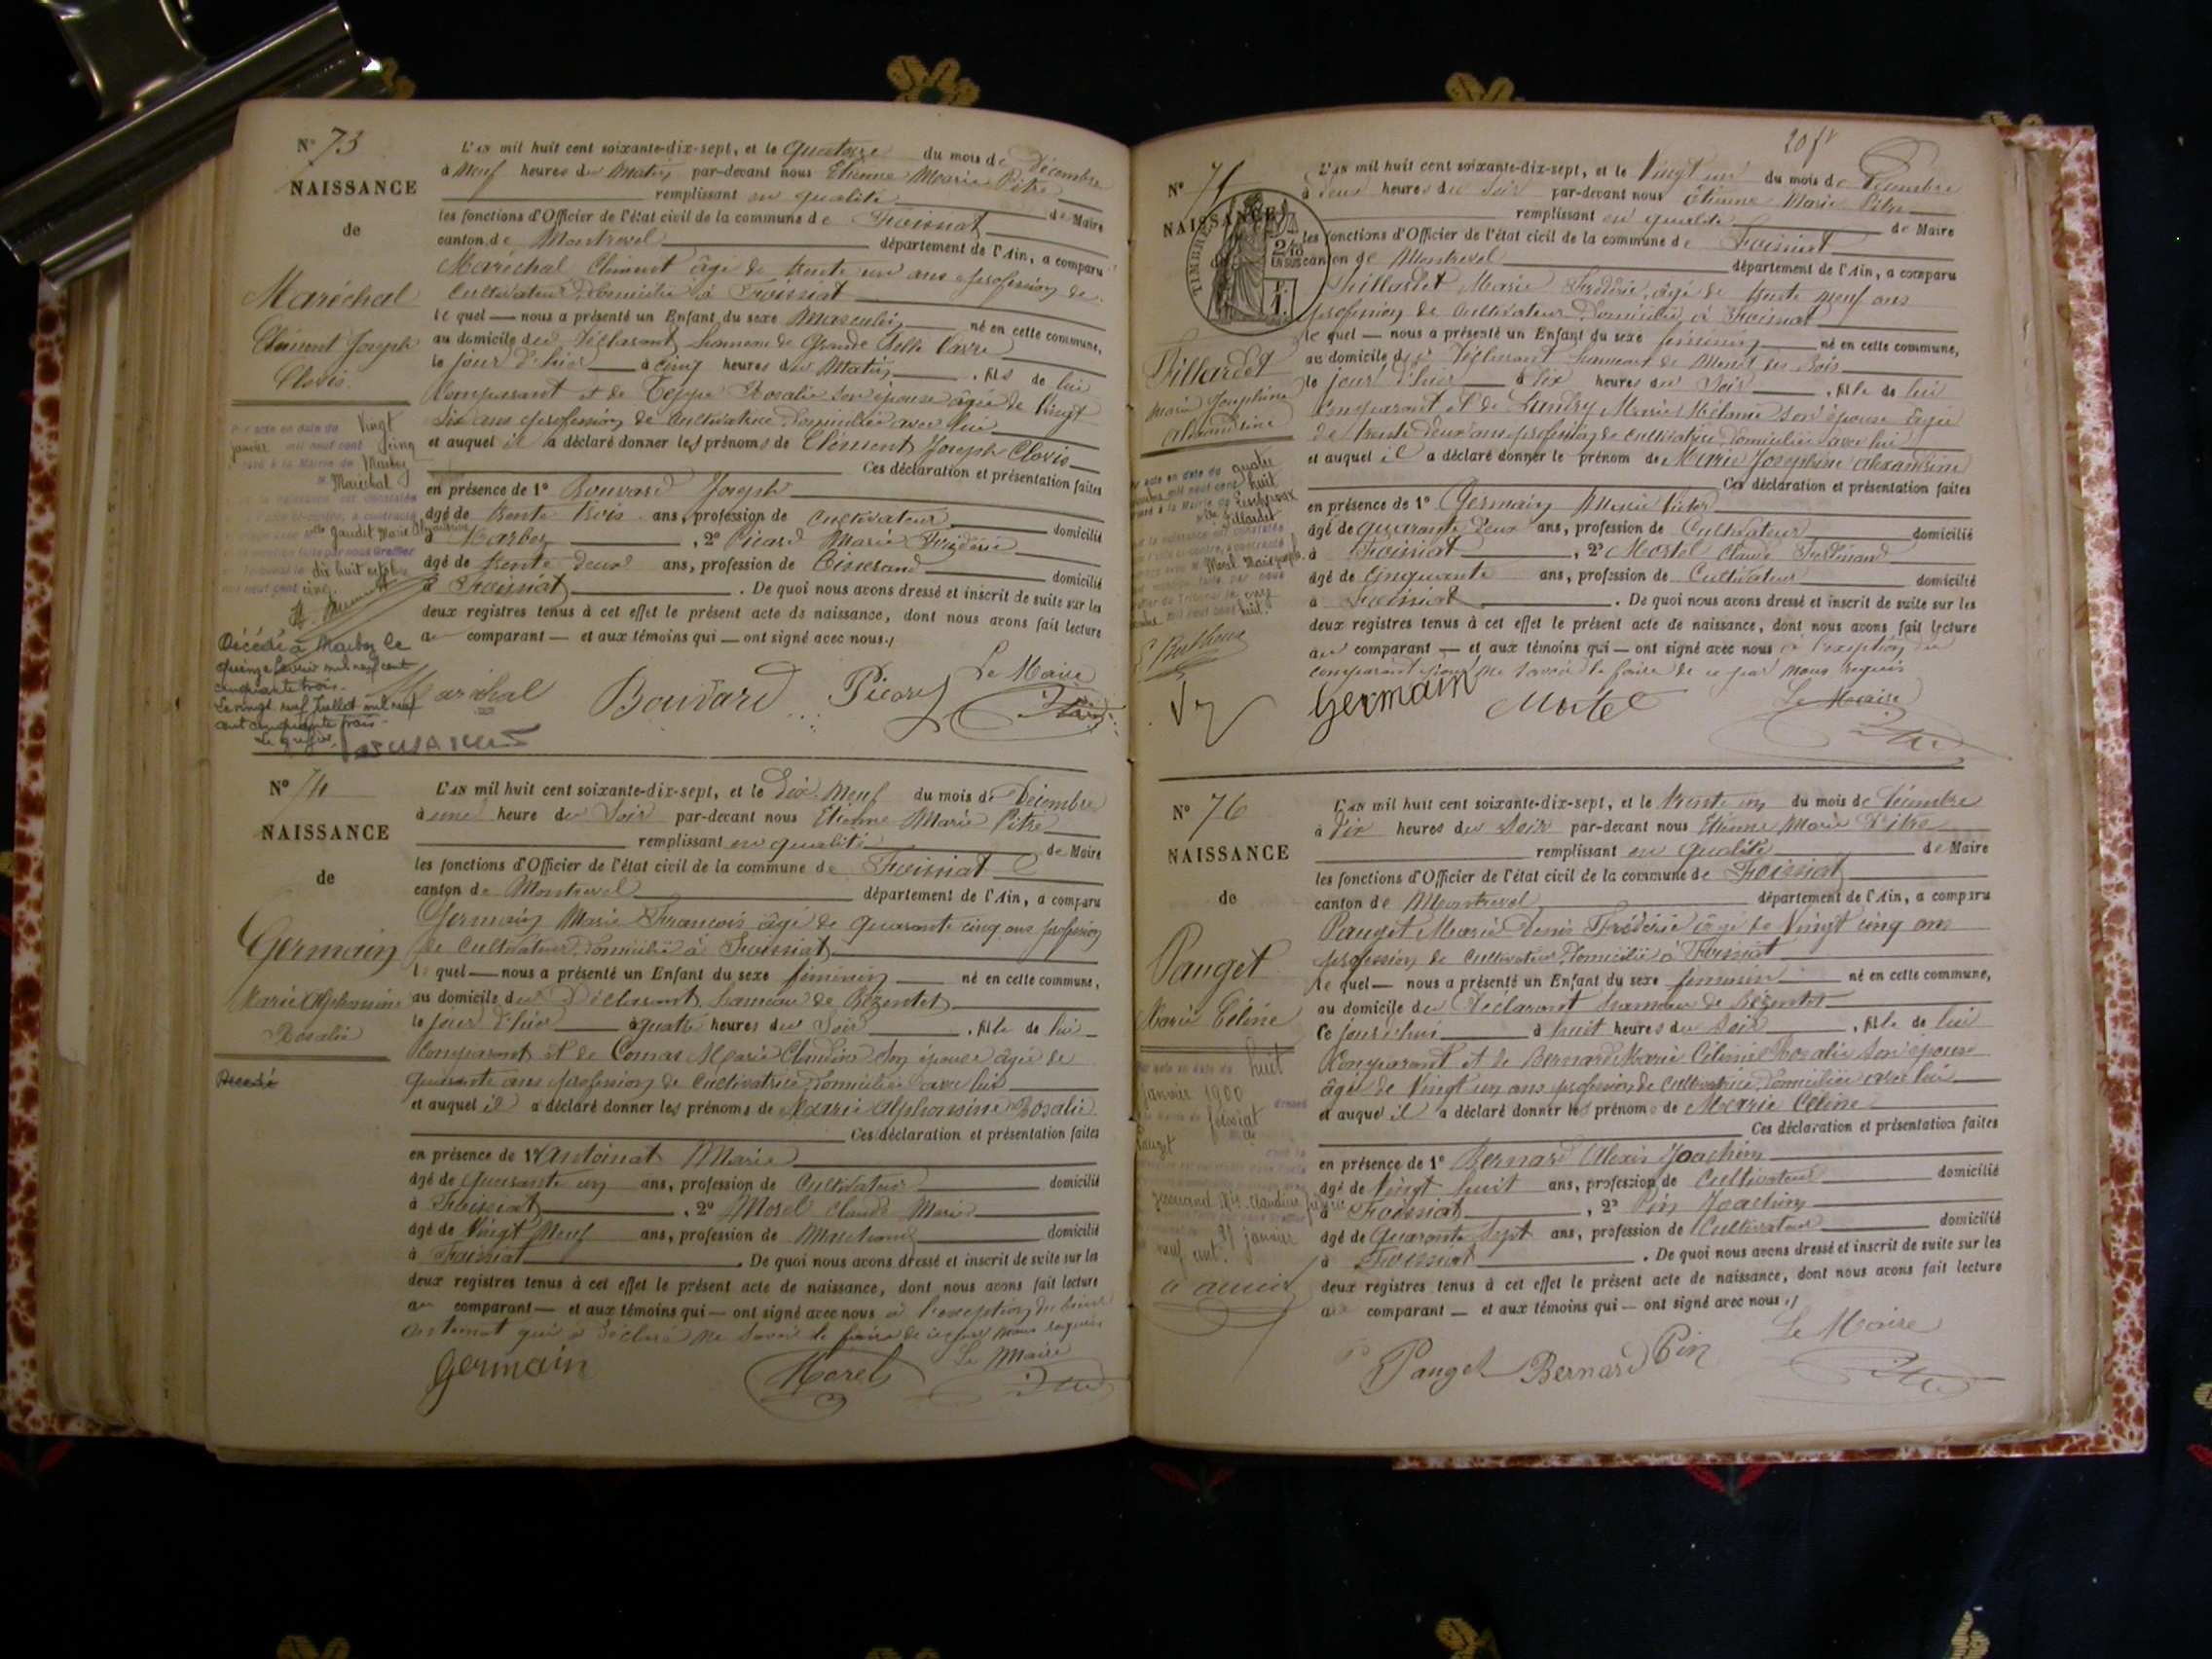 N° 73
NAISSANCE
de
Maréchal
Clément Joseph
Clovis.
L'AN mil huit cent soixante-dix-sept, et le Quatorze du mois de Décembre
à Neuf heures du Matin par-devant nous Etienne Marie Pitre
remplissant en qualité de Maire
les fonctions d'Officier de l'état civil de la commune de Foissiat
canton de Montrevel département de l'Ain, a comparu
Maréchal Clément âgé de trente un ans profession de
Cultivateur domicilié à Foissiat
le quel — nous a présenté un Enfant du sexe Masculin né en cette commune,
au domicile du Déclarant hameau de Grande
le jour d'hier à cinq heures du Matin, fils de lui
Comparant et de Rosalie son épouse âgée de Vingt
Six ans profession de cultivatrice domiciliée avec lui
et auquel il a déclaré donner les prénoms de Clément Joseph Clovis
Ces déclaration et présentation faites
en présence de 1° Bouvard Joseph
âgé de trente trois ans, profession de Cultivateur domicilié
à Marboz, 2° Picard Marie Frédéric
âgé de trente deux ans, profession de Tisserand domicilié
à Foissiat. De quoi nous avons dressé et inscrit de suite sur les
deux registres tenus à cet effet le présent acte de naissance, dont nous avons fait lecture
au comparant — et aux témoins qui — ont signé avec nous.
Par acte en date du Vingt
janvier mil neuf cent cinq
Marboz
Maréchal
Gaudit Marie
dix huit octobre
mil neuf cent cinq.
Décédé à Marboz le
quinze février mil neuf cent
cinquante trois.
Le vingt neuf juillet mil neuf
cent cinquante trois.
Le greffier
Maréchal Bouvard Picard Le Maire
Pitre
N° 74
NAISSANCE
de
Germain
Marie Alphonsine
Rosalie
Décédé
L'AN mil huit cent soixante-dix-sept, et le Dix Neuf du mois de Décembre
à une heure du Soir par-devant nous Etienne Marie Pitre
remplissant en qualité de Maire
les fonctions d'Officier de l'état civil de la commune de Foissiat
canton de Montrevel département de l'Ain, a comparu
Germain Marie François âgé de quarante cinq ans profession
de Cultivateur domicilié à Foissiat
le quel — nous a présenté un Enfant du sexe féminin né en cette commune,
au domicile du Déclarant hameau de Bézentet
le jour d'hier à quatre heures du Soir, fille de lui
Comparant et de Comas Marie Claudine son épouse âgée de
quarante ans profession de cultivatrice domiciliée avec lui
et auquel il a déclaré donner les prénoms de Marie Alphonsine Rosalie
Ces déclaration et présentation faites
en présence de 1° Antoinat Marie
âgé de Quarante un ans, profession de Cultivateur domicilié
à Foissiat, 2° Morel Claude Marie
âgé de Vingt Neuf ans, profession de Marchand domicilié
à Foissiat. De quoi nous avons dressé et inscrit de suite sur les
deux registres tenus à cet effet le présent acte de naissance, dont nous avons fait lecture
au comparant — et aux témoins qui — ont signé avec nous à l'exception du
Antoinat qui a déclaré ne savoir le faire de ce par nous requis
Germain Morel Le Maire
Pitre
N° 75
NAISSANCE
TIMBRE
2/10
EN SUS
Tillardet
Marie Joséphine
Alexandrine
L'AN mil huit cent soixante-dix-sept, et le Vingt un du mois de Décembre
à deux heures du Soir par-devant nous Etienne Marie Pitre
remplissant en qualité de Maire
les fonctions d'Officier de l'état civil de la commune de Foissiat
canton de Montrevel département de l'Ain, a comparu
Tillardet Marie Frédéric, âgé de trente neuf ans
profession de Cultivateur domicilié à Foissiat
le quel — nous a présenté un Enfant du sexe féminin né en cette commune,
au domicile du Déclarant hameau de
le jour d'hier à dix heures du Soir, fille de lui
Comparant et de Landry Marie Mélanie son épouse âgée
de trente deux ans profession de cultivatrice domiciliée avec lui
et auquel il a déclaré donner le prénom de Marie Joséphine Alexandrine
Ces déclaration et présentation faites
en présence de 1° Germain Marie Victor
âgé de quarante deux ans, profession de Cultivateur domicilié
à Foissiat, 2° Mortel Claude Ferdinand
âgé de Cinquante ans, profession de Cultivateur domicilié
à Foissiat. De quoi nous avons dressé et inscrit de suite sur les
deux registres tenus à cet effet le présent acte de naissance, dont nous avons fait lecture
au comparant — et aux témoins qui — ont signé avec nous à l'exception du
comparant pour ne savoir le faire de ce par nous requis
en date du quatre
mil neuf cent huit
Tillardet
Morel
huit.
Germain Mortel Le Maire
Pitre
N° 76
NAISSANCE
de
Pauget
Marie Céline
L'AN mil huit cent soixante-dix-sept, et le trente un du mois de Décembre
à Dix heures du Soir par-devant nous Etienne Marie Pitre
remplissant en qualité de Maire
les fonctions d'Officier de l'état civil de la commune de Foissiat
canton de Montrevel département de l'Ain, a comparu
Pauget Marie Denis Frédéric âgé de Vingt cinq ans
profession de Cultivateur domicilié à Foissiat
le quel — nous a présenté un Enfant du sexe féminin né en cette commune,
au domicile du Déclarant hameau de Bézentet
Ce jourd'hui à huit heures du Soir, fille de lui
Comparant et de Bernard Marie Rosalie son épouse
âgée de Vingt un ans profession de cultivatrice domiciliée avec lui
et auquel il a déclaré donner les prénoms de Marie Céline
Ces déclaration et présentation faites
en présence de 1° Bernard Alexis Joachim
âgé de Vingt huit ans, profession de Cultivateur domicilié
à Foissiat, 2° Pin Joachim
âgé de Quarante Sept ans, profession de Cultivateur domicilié
à Foissiat. De quoi nous avons dressé et inscrit de suite sur les
deux registres tenus à cet effet le présent acte de naissance, dont nous avons fait lecture
au comparant — et aux témoins qui — ont signé avec nous.
huit
Janvier 1900
foissiat
Pauget
Claudius
31 janvier
neuf cent.
Pauget Bernard Pin Le Maire
Pitre